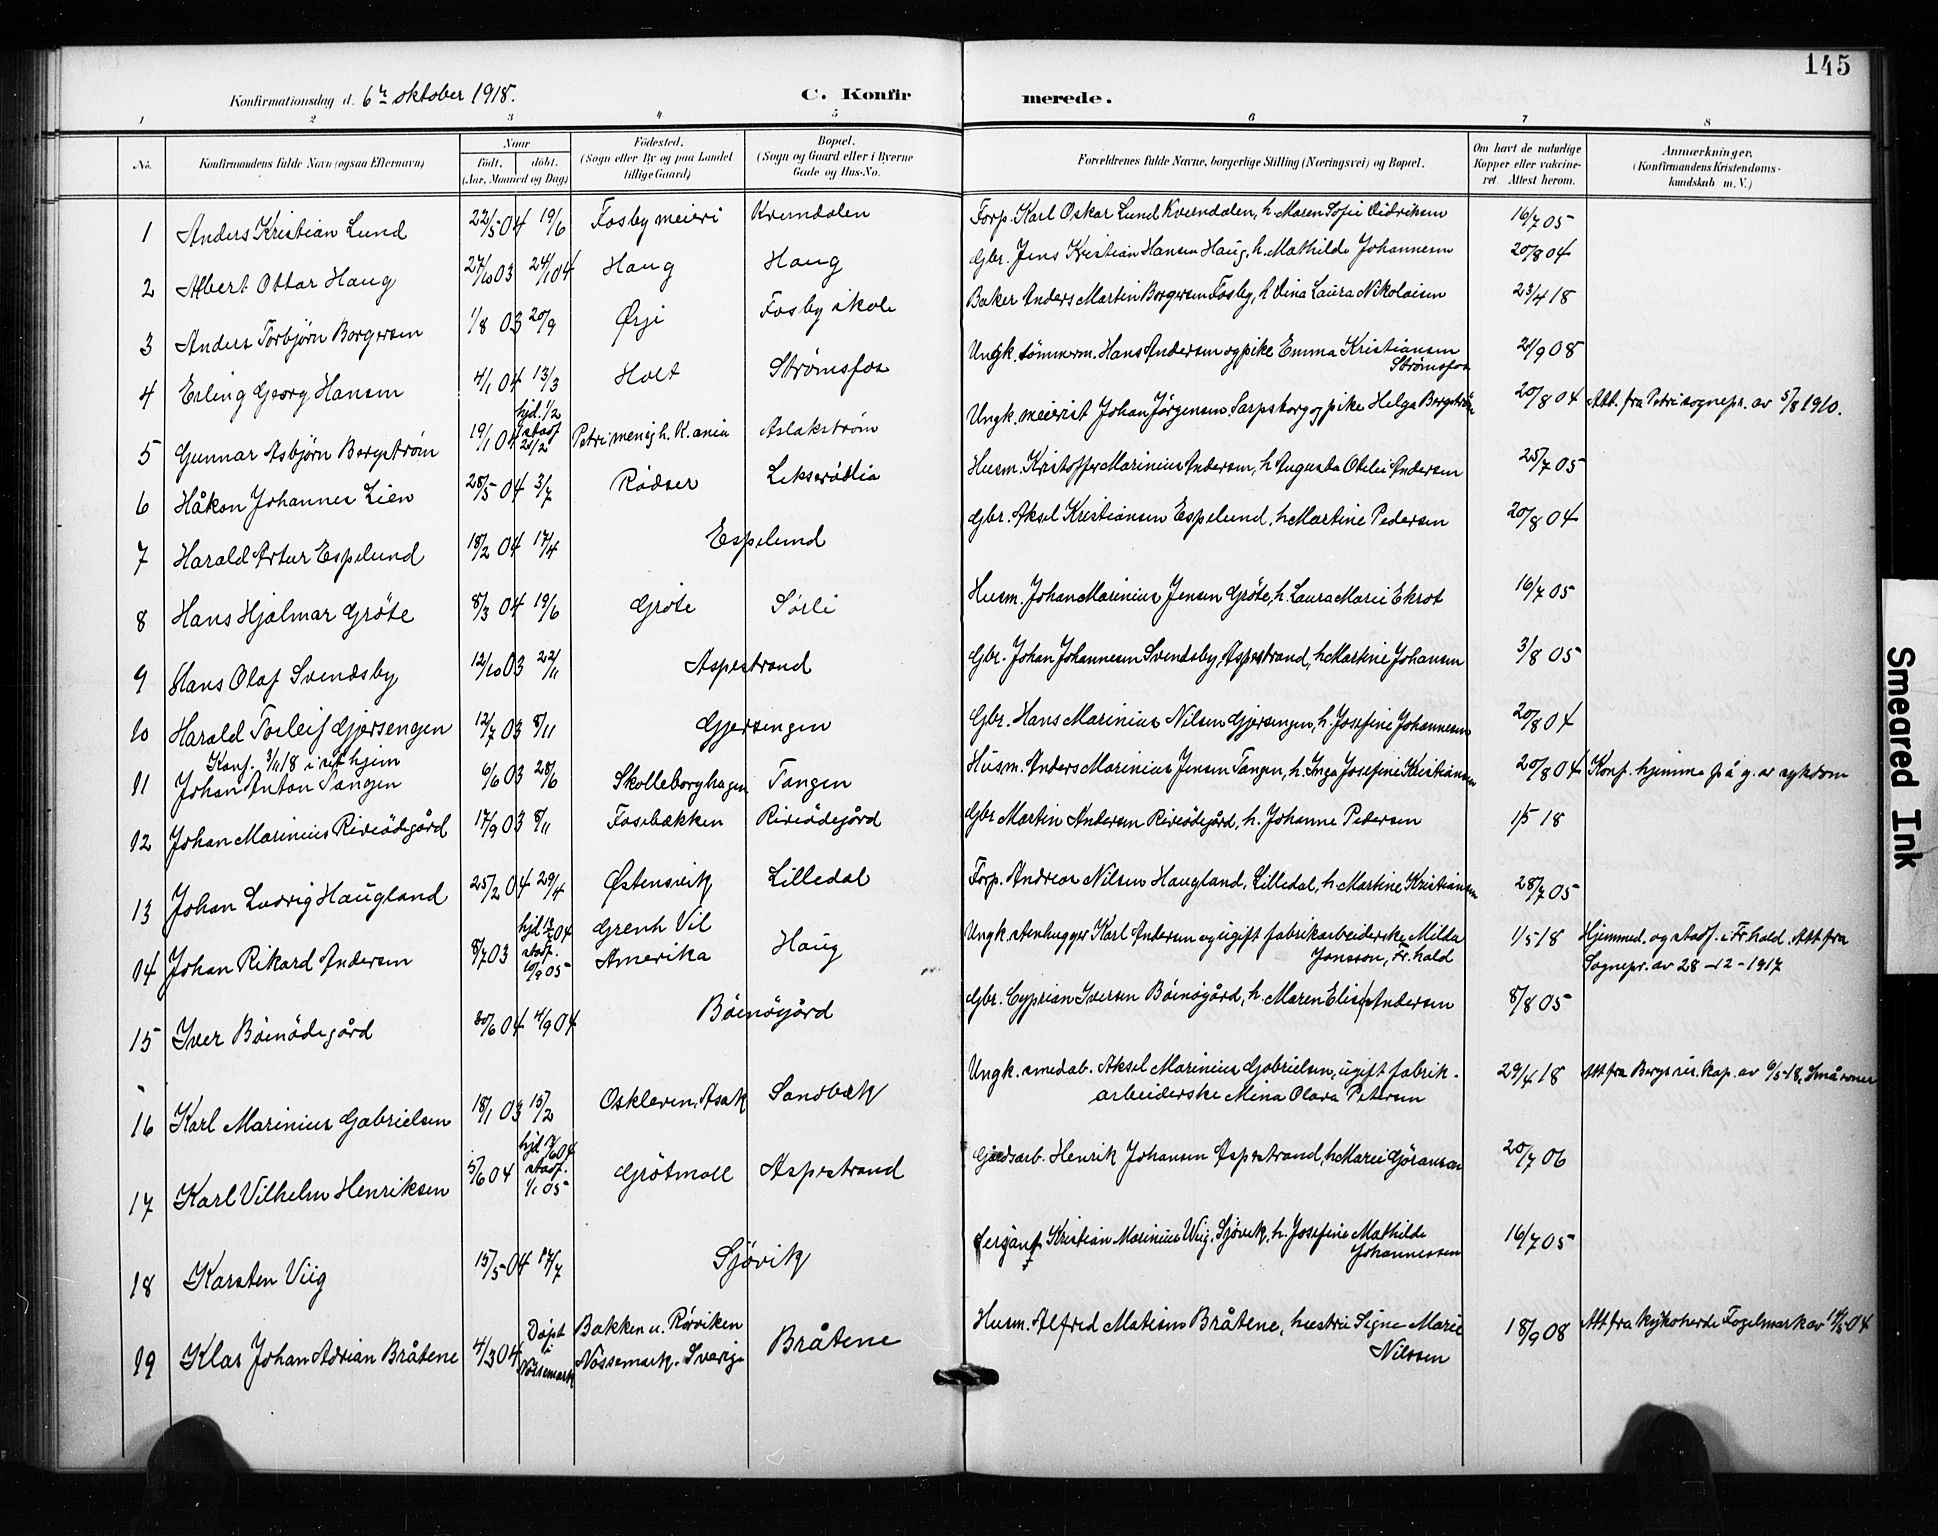 145
Konfirmationsdag d. 6te oktober 1918.
C. Konfirmerede.
1 2 3 4 5 6 7 8
No.
Konfirmandens fulde Navn (ogsaa Efternavn)
Naar
født. døbt.
(Aar, Maaned og Dag)
Fødested.
(Sogn eller By og paa Landet
tillige Gaard)
Bopæl.
(Sogn og Gaard eller i Byerne
Gade og Hus-No.
Forældrenes fulde Navne, borgerlige Stilling (Næringsvei) og Bopæl.
Om havt de naturlige
Kopper eller vakcine-
ret Attest herom.
Anmærkninger,
(Konfirmandens Kristendoms-
kundskab m. V.)
1 Anders Kristian Lund 22/5 04 19/6 Fosby meieri Kverndalen Forp. Karl Oskar Lund Kverndalen, h. Maren Sofie Didriksen 16/7 05
2 Albert Ottar Haug 27/10 03 24/1 04 Haug Haug Gbr. Jens Kristian Hansen Haug, h. Mathilde Johannesen 20/8 04
3 Anders Torbjørn Borgersen 1/8 03 20/9 Ørje Fosby skole Baker Anders Martin Borgersen Fosby, h. Dina Laura Nikolaisen 23/4 18
4 Erling Georg Hansen 4/1 04 13/3 Holt Strømsfos Ungk. tømmerm. Hans Andersen og pike Emma Kristiansen
Strømsfos 21/9 08
5 Gunnar Asbjørn Bergstrøm 19/1 04 hjd. 1/2
stadf
21/2 Petri menigh. K.ania Aslakstrøm Ungk. meierist Johan Jørgensen Sarpsborg og pike Helga Bergstrøm 20/8 04 Att. fra Petri sognepr. av 5/8 1910.
6 Håkon Johannes Lien 28/5 04 3/7 Rødser Lekserødlia Husm. Kristoffer Marinius Andersen, h. Augusta Otelie Andersen 25/7 05
7 Harald Artur Espelund 18/2 04 17/4 Espelund Gbr. Aksel Kristiansen Espelund, h. Martine Pedersen 20/8 04
8 Hans Hjalmar Grøte 8/3 04 19/6 Grøte Sørli Husm. Johan Marinius Jensen Grøte, h. Laura Marie Ekrot 16/7 05
9 Hans Olaf Svendsby 12/10 03 22/11 Aspestrand Gbr. Johan Johannesen Svendsby, Aspestrand, h. Martine Johansen 3/8 05
10 Harald Torleif Gjersengen 12/7 03 8/11 Gjersengen Gbr. Hans Marinius Nilsen Gjersengen, h. Josefine Johannesen 20/8 04
Konf. 3/11 18 i sit hjem
11 Johan Anton Tangen 6/6 03 28/6 Skolleborghagen Tangen Husm. Anders Marinius Jensen Tangen, h. Inga Josefine Kristiansen 20/8 04 Konf. hjemme på g. av sykdom
12 Johan Marinius Riviødegård 17/9 03 8/11 Fossbækken Riviødegård Gbr. Martin Andersen Riviødegård, h. Johanne Pedersen 1/5 18
13 Johan Ludvig Haugland 25/2 04 29/4 Østensvik Lilledal Forp. Andreas Nilsen Haugland, Lilledal, h. Martine Kristiansen 28/7 05
14 Johan Rikard Andersen 8/7 03 hjd. 04
stadf.
10/9 05 Grenh Vil
Amerika Haug Ungk. stenhugger Karl Andersen og ugift fabrikarbeiderske Milda
Jonsson, Fr.hald 1/5 18 Hjemmed. og stadf. i Fr.hald. Att fra
Sognepr. av 28-12-1917
15 Iver Bøenødegård 30/6 04 4/9 04 Bøenøgård Gbr. Cyprian Iversen Bøenøgård, h. Maren Elise Andersen 8/8 05
16 Karl Marinius Gabrielsen 18/1 03 15/2 Oskleven, Asak Sandbæk Ungk. smedab. Aksel Marinius Gabrielsen, ugift fabrik-
arbeiderske Mina Olava Petersen 29/4 18 Att fra Bergs res. kap. av 6/5 18.
17 Karl Vilhelm Henriksen 5/6 04 hjd 04
stadf.
1/1 05 Grötmoll Aspestrand Gårdsarb. Henrik Johansen Aspestrand, h. Marie Göransen 20/7 06
18 Karsten Viig 15/5 04 17/7 Sjøvik Sersjant Kristian Marinius Wiig, Sjøvik, h. Josefine Mathilde
Johannessen 16/7 05
19 Klas Johan Adrian Bråtene 4/3 04 Døpt
i
Nössemark Bakken u. Rörviken
Nössemark. Sverige Bråtene Husm. Alfred Matisen Bråtene, hustru Signe Marie
Nilssen 18/9 08 Att fra kykoherde Fogelmark av 14/5 04
Smeared Ink